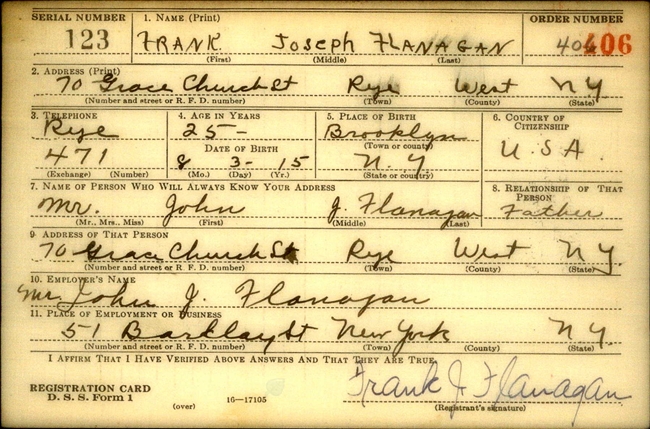 SERIAL NUMBER 1. NAME (Print) ORDER NUMBER
123 FRANK JOSEPH FLANAGAN 406 406
(First) (Middle) (Last)
2. ADDRESS (Print)
70 Grace Church St Rye West NY
(Number and street or R. F. D. number) (Town) (County) (State)
3. TELEPHONE 4. AGE IN YEARS 5. PLACE OF BIRTH 6. COUNTRY OF CITIZENSHIP
Rye 25- Brooklyn
DATE OF BIRTH (Town or county) U.S.A.
471 8 3-15 N.Y
(Exchange) (Number) (Mo.) (Day) (Yr.) (State or country)
7. NAME OF PERSON WHO WILL ALWAYS KNOW YOUR ADDRESS 8. RELATIONSHIP OF THAT PERSON
Mr. John J. Flanagan Father
(Mr., Mrs., Miss) (First) (Middle) (Last)
9. ADDRESS OF THAT PERSON
70 Grace Church St Rye West N.Y.
(Number and street or R. F. D. number) (Town) (County) (State)
10. EMPLOYER'S NAME
Mr. John J. Flanagan
11. PLACE OF EMPLOYMENT OR BUSINESS
51 Barklay St New York N.Y.
(Number and street or R. F. D. number) (Town) (County) (State)
I AFFIRM THAT I HAVE VERIFIED ABOVE ANSWERS AND THAT THEY ARE TRUE.
Frank J Flanagan
REGISTRATION CARD
D. S. S. Form 1 (over) 16-17105 (Registrant's signature)